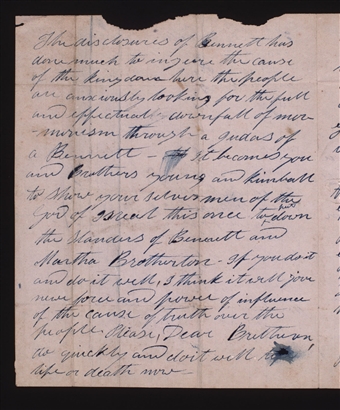 The disclosures of Bennett has
done much to injure the cause
of the kingdom here the people
are anxiously looking for the full
and effectual downfall of mor-
monism through a Judas of
a Bennett - it becomes you
and Brothers young and kimball
to show your selves men of the
god of Isreal this once to put down
the slanders of Bennett and
Martha Brotherton - If you do it
and do it well, I think it will give
new force and power of influence
of the cause of truth over the
people Please, Dear Brethren,
do quickly and do it well
life or death now -